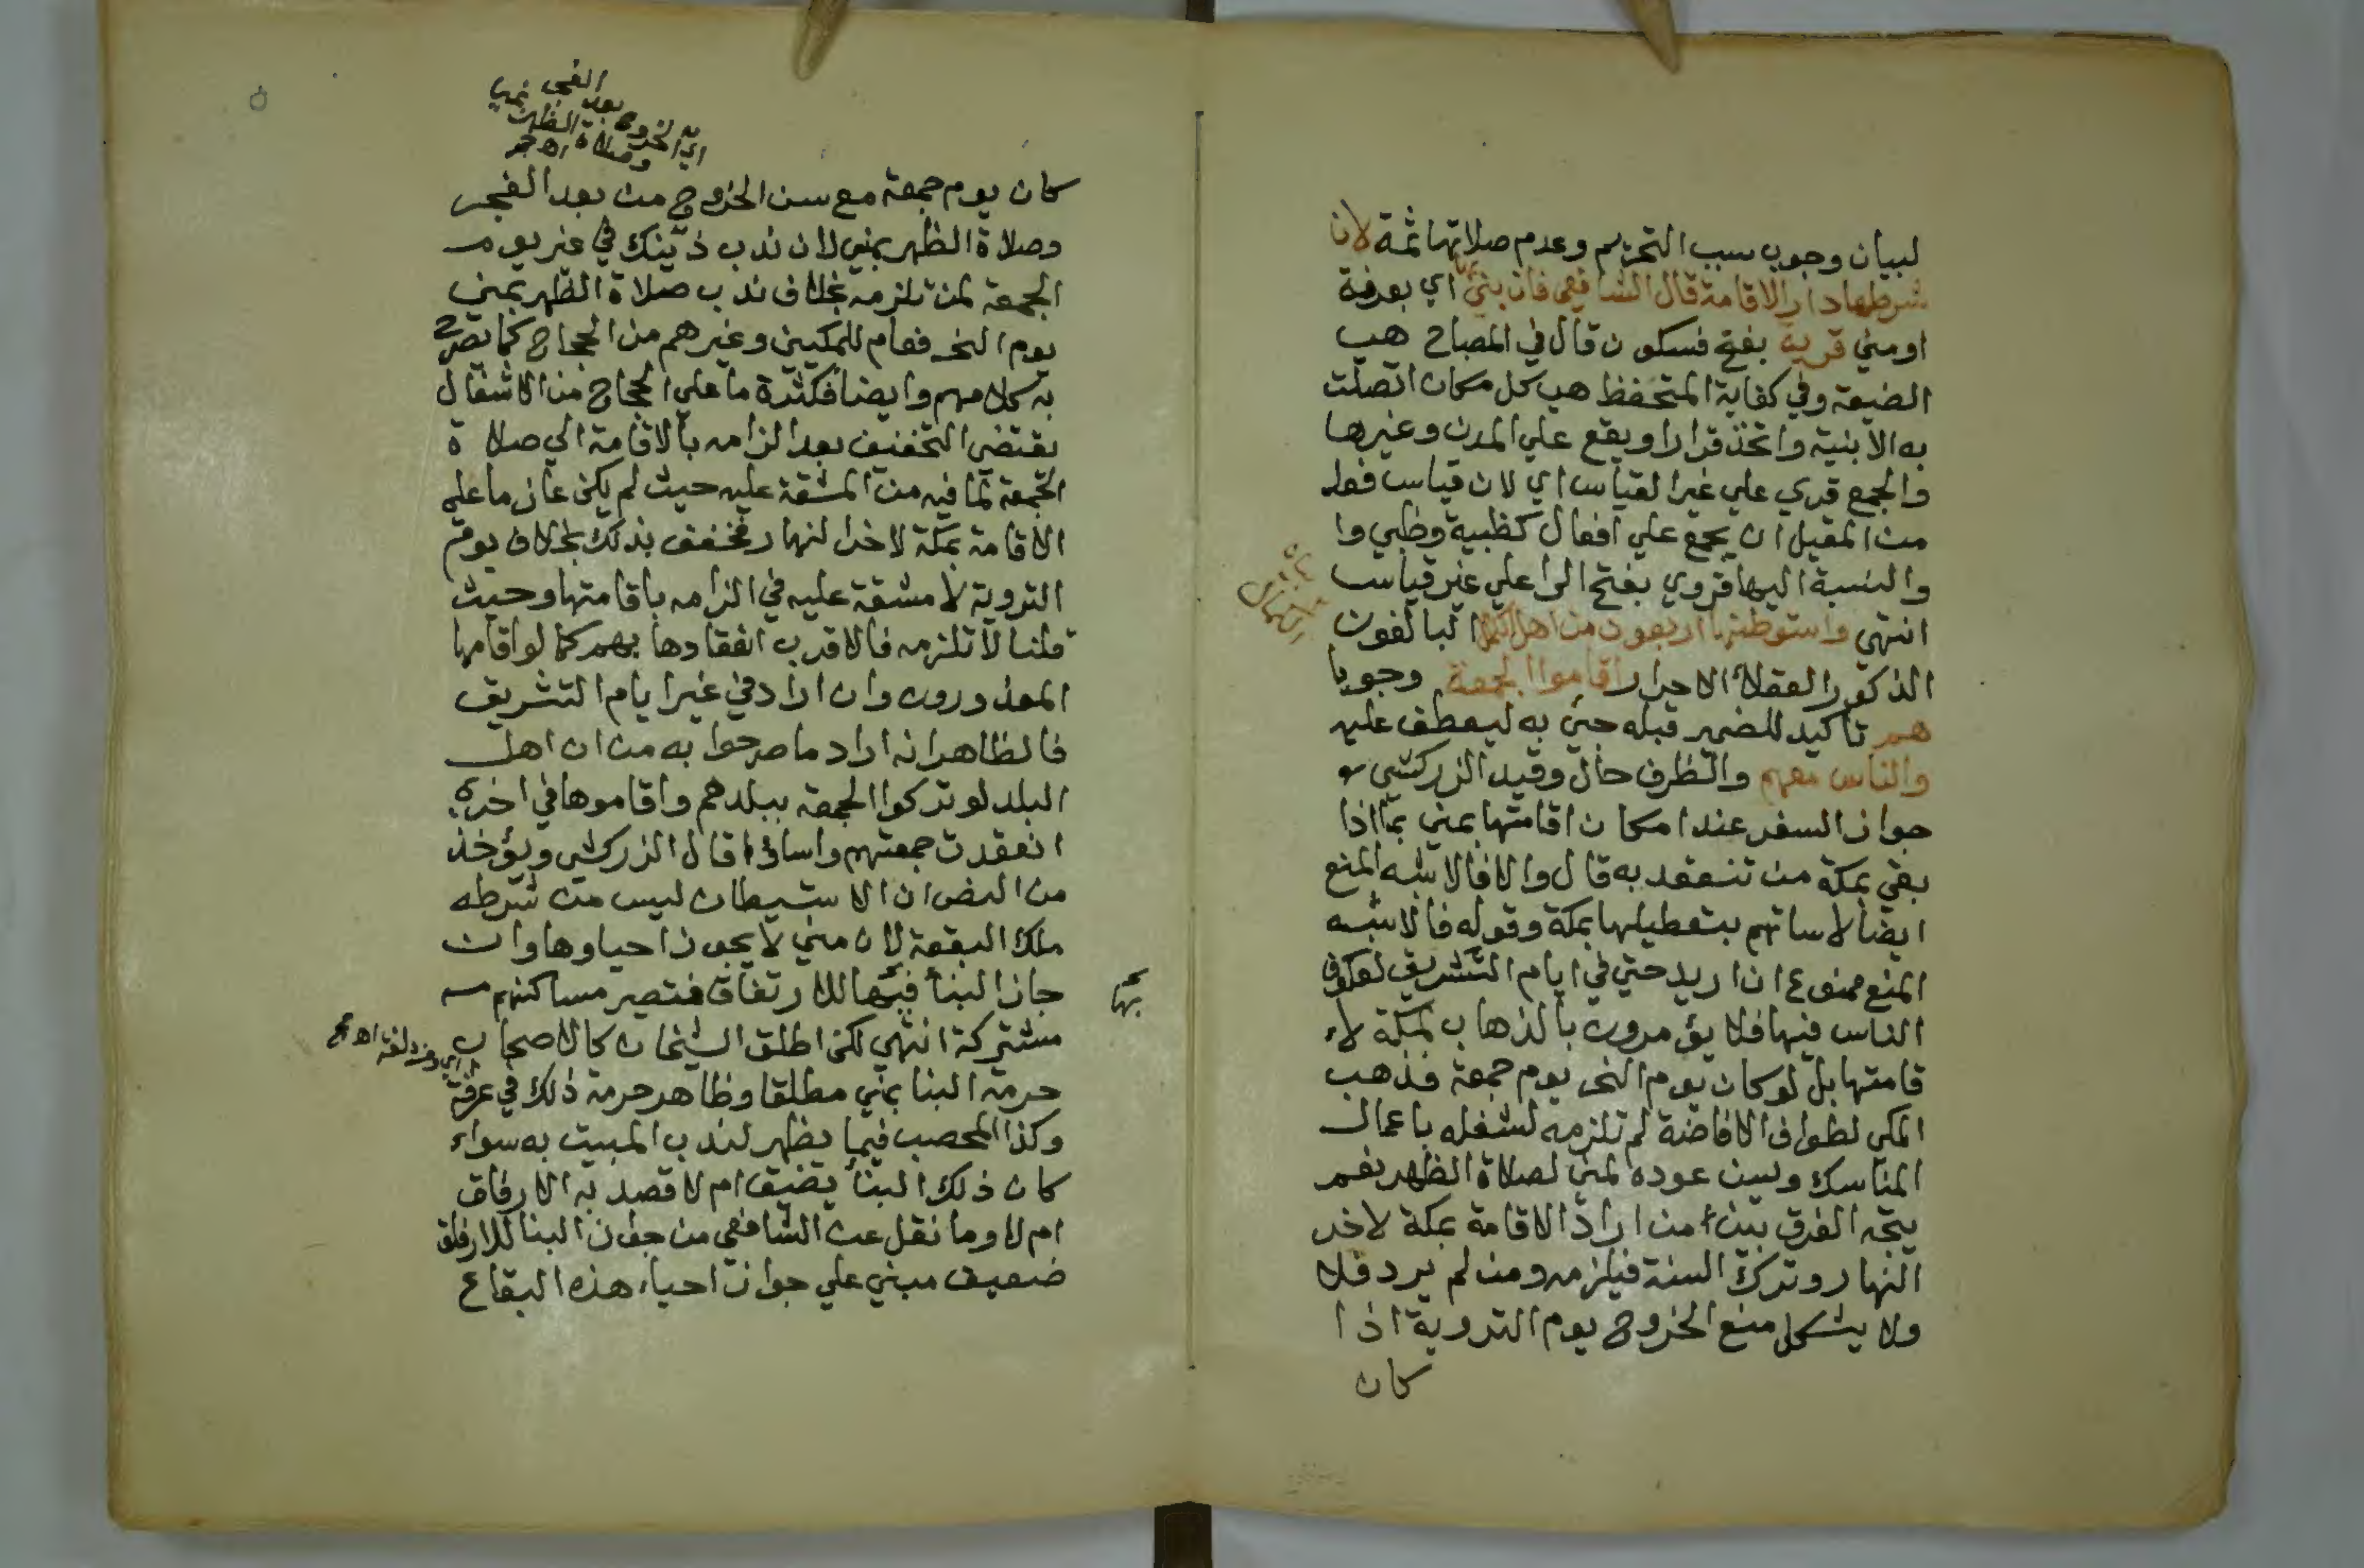 لبيان وجوب سبب التحريم وعدم صلاتها ثمة لان
شرطها دار الاقامة قال الشافعي فان بني بها اي بعرفة
او مني قرية بفتح فسكون قال في المصباح هي
الضيعة وفي كفاية المتحفظ هي كل مكان اتصلت
به الابنية واتخذ قرارا ويقع علي المدن وغيرها
والجمع قري علي غير القياس اي لان قياس فعله
من المقيل ان يجمع علي افعال كظبية وظبي وا
والنسبة اليها قروي بفتح الرا علي غير قياس
انتهي واستوطنها اربعون من اهل الكمال البالغون
الذكور العقلا الاحرار اقاموا الجمعة وجوبا
هم تاكيد للضمير قبله جئ به ليعطف عليه
والناس معهم والظرف حال وقيد الزركشي
جواز السفر عند امكان اقامتها بمني بما اذا
بقي بمكة من تنعقد به قال والا فالاشبه المنع
ايضا لاساتهم بتعطيلها بمكة وقوله فالاشبه
المنع ممنوع ان اريد حتي في ايام التشريق لعكوف
الناس فيها فلا يؤمرون بالذهاب لمكة لا
قامتها بل لو كان يوم النحر يوم جمعة فذهب
المكي لطواف الافاضة لم تلزمه لشغله باعمال
المناسك وسن عوده لمني لصلاة الظهر نعم
يتجه الفرق بين من اراد الاقامة بمكة لاخر
النهار وترك السنة فيلزمه ومن لم يرد فلا
ولا يشكل منع الخروج يوم التروية اذا
كان
اي الخروج بعد الفجر
وصلاة الظهر بمني
كان يوم جمعة مع سن الخروج من بعد الفجر
وصلاة الظهر بمني لان ندب ذينك في غير يوم
الجمعة لمن تلزمه بخلاف ندب صلاة الظهر بمني
يوم النحر فعام للمكيين وغيرهم من الحجاج كما يصرح
به كلامهم وايضا فكثرة ما علي الحجاج من الاشغال
يقتضي التخفيف بعد الزامه بالاقامة الي صلاة
الجمعة لما فيه من المشقة عليه حيث لم يكن عازما علي
الاقامة بمكة لاخر النهار فخفف بذلك بخلاف يوم
التروية لا مشقة عليه في الزامه باقامتها وحيث
قلنا لا تلزمه فالاقرب انعقادها بهم كما لو اقامها
المعذورون وان اراد في غير ايام التشريق
فالظاهر انه اراد ما صرحوا به من ان اهل
البلد لو تركوا الجمعة ببلدهم واقاموها في اخري
انعقدت جمعتهم واساؤا قال الزركشي ويؤخذ
من النص ان الاستيطان ليس من شرطه
ملك البقعة لان مني لا يجوز احياوها وان
جاز البنأ فيها للارتفاق فتصير مساكنهم
مشتركة انتهي لكن اطلق الشيخان كالاصحاب
حرمة البنا بمني مطلقا وظاهر حرمة ذلك في عرفة
اي ومزدلفة
وكذا المحصب فيما يظهر لندب المبيت به سواء
كان ذلك البنأ يضيق ام لا قصد به الارفاق
ام لا وما نقل عن الشافعي من جواز البنا للارفاق
ضعيف مبني علي جواز احياء هذه البقاع